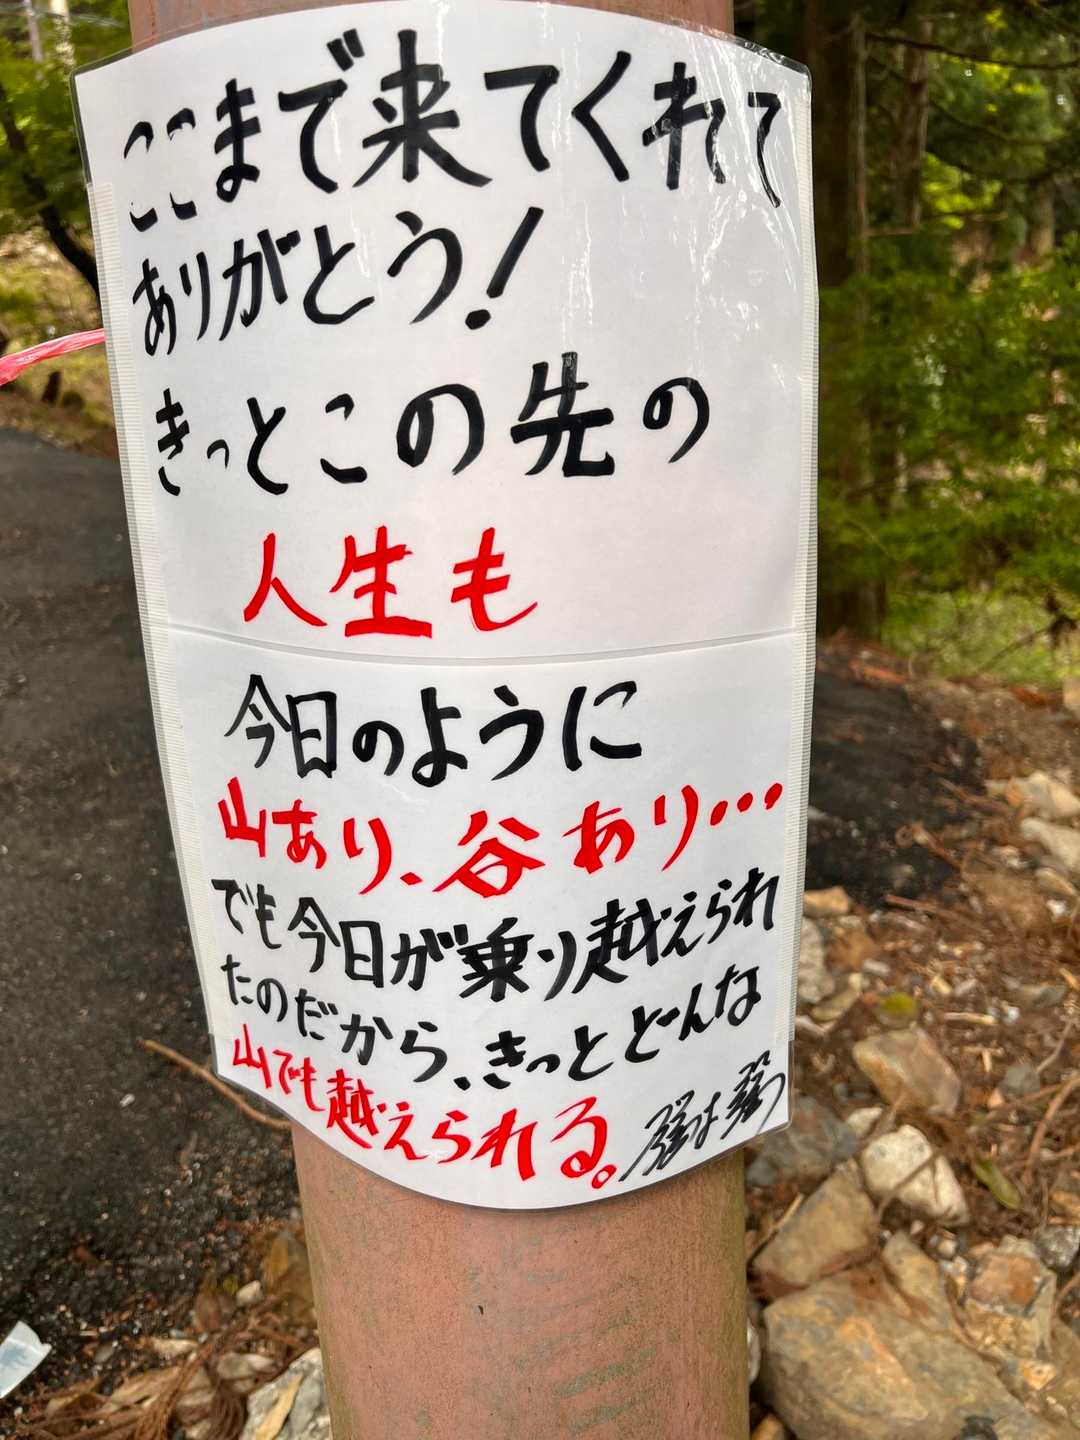 ここまで来てくれて
ありがとう!
きっとこの先の
人生も
今日のように
山あり、谷あり・・・
でも今日が乗り越えられ
たのだから、きっとどーんな
山でも越えられる。